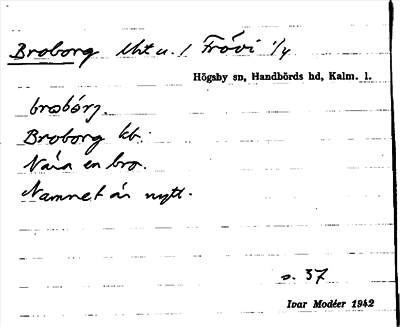 Broborg lht u. / Frövi 1/4
Högsby sn, Handbörds hd, Kalm. l.
brobórj.
Broborg kb.
Nära en bro.
Namnet är nytt.
s. 37
Ivar Modéer 1942